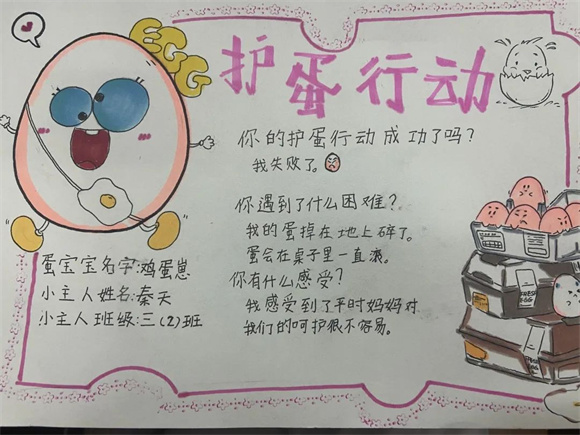 EGG
护蛋行动
你的护蛋行动成功了吗？
我失败了。
你遇到了什么困难？
我的蛋掉在地上碎了。
蛋会在桌子里一直滚。
你有什么感受？
我感受到了平时妈妈对
我们的呵护很不容易。
蛋宝宝名字：鸡蛋崽
小主人姓名：秦天
小主人班级：三（2）班
FRESH
EGG